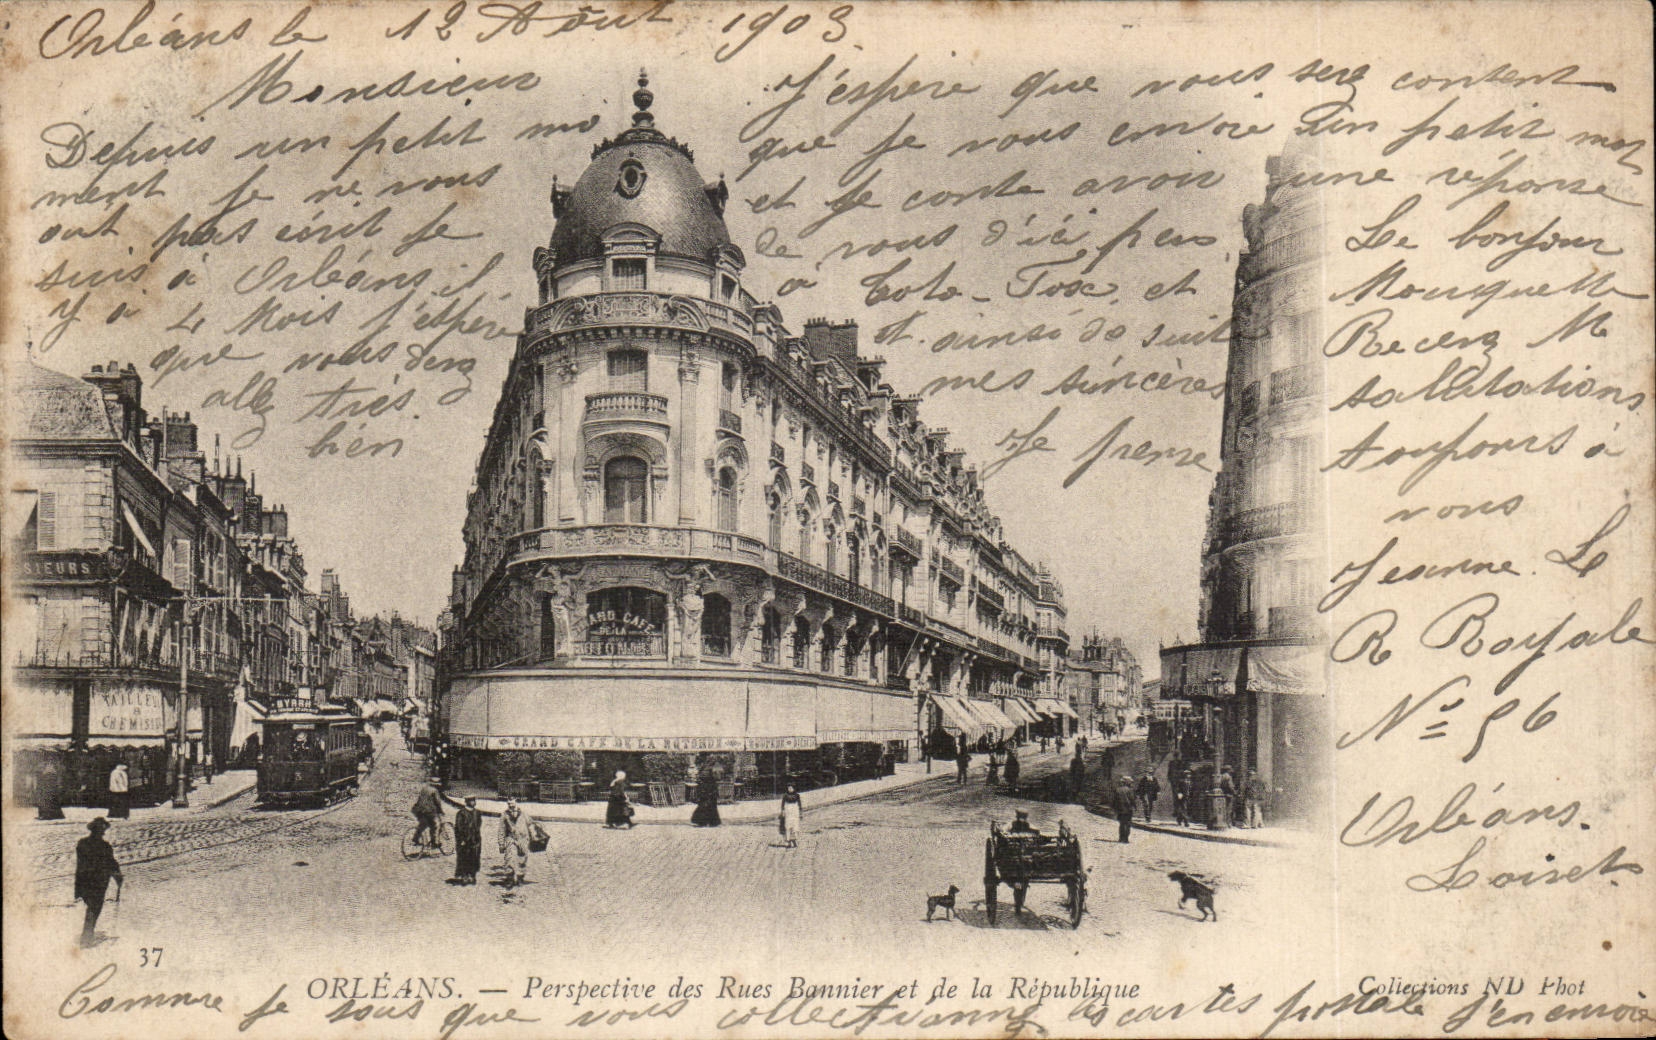 Orléans le 12 Août 1903
Monsieur
Depuis un petit mo
ment je ne vous
ait pas écrit je
suis à Orléans il
y a 4 Mois j'éspére
que vous
allez très
bien
J'éspère que vous serez content
que je vous envoie un petit mot
et je conte avoir une réponse
de vous d'ici peu
à Toto - Tose, et
et ainsi de suit
mes sincères
Je pense
Le bonjour
Mouquette
Recevez M
salutations
toujours à
vous
Jeanne. L
R Royale
N° 56
Orléans.
Loiret
SIEURS
TAILLEUR
&
CHEMISIER
BYRRH
GRAND CAFÉ
DE LA
ROTONDE
GRAND CAFE DE LA ROTONDE
37
ORLÉANS. — Perspective des Rues Bannier et de la République
Collections ND Phot
Comme je sous que vous collectionnez les cartes postale j'en envoie